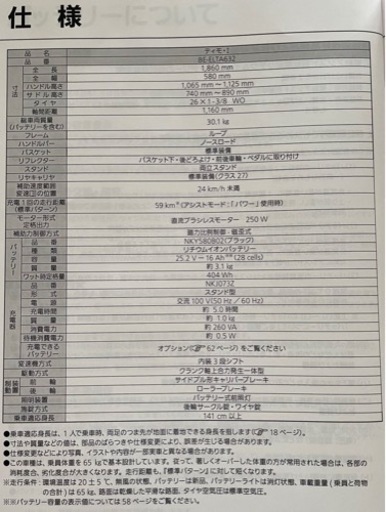 仕 様
品 名 ティモ・I
品 番 BE-ELTA632
寸法
全 長 1,860 mm
全 幅 580 mm
ハンドル高さ 1,065 mm～1,125 mm
サドル高さ 740 mm～890 mm
タイヤ 26×1-3/8 WO
軸間距離 1,160 mm
総車両質量
(バッテリーを含む) 30.1 kg
フレーム ループ
ハンドルバー ノースロード
バスケット 標準装備
リフレクター バスケット下・後どろよけ・前後車輪・ペダルに取り付け
スタンド 両立スタンド
リヤキャリヤ 標準装備(クラス27)
補助速度範囲 24 km/h 未満
充電1回の走行距離
(標準パターン) 59 km (アシストモード:「パワー」使用時)
モーター形式
定格出力 直流ブラシレスモーター 250 W
補助力制御方式 踏力比例制御・磁歪式
バッテリー
品 番 NKY580B02(ブラック)
種 類 リチウムイオンバッテリー
容 量 25.2 V－16 Ah (28 cells)
質 量 約 3.1 kg
ワット時定格量 404 Wh
充電器
品 番 NKJ073Z
形 式 スタンド型
電 源 交流 100 V(50 Hz／60 Hz)
充電時間 約 5.0 時間
質 量 約 1.0 kg
消費電力 約 260 VA
待機消費電力 約 0.5 W
充電できる
バッテリー オプション(62 ページ)をご覧ください
変速機方式 内装 3 段シフト
駆動方式 クランク軸上合力発生一体型
制動装置
前 輪 サイドプル形キャリパーブレーキ
後 輪 ローラーブレーキ
照明装置 バッテリー式前照灯
施錠方式 後輪サークル錠・ワイヤ錠
乗車適応身長 141 cm 以上
●乗車適応身長は、1人で乗車時、両足のつま先が地面に着地できる身長を指します(18 ページ)。
●寸法や質量などの値は、部品のばらつきや仕様変更により、誤差が生じる場合があります。
●仕様変更などにより、写真、イラストや内容が一部実車と異なる場合があります。
●この車種は、乗員体重を 65 kgで基本設計しています。従って、著しくオーバーした体重の方が常用される場合は、各部の
消耗度合、劣化度合が大きくなります。走行距離も、「標準パターン」に対して短くなります。
※走行条件：環境温度は 20±5 ℃、無風の状態、バッテリーは新品、バッテリーライトは消灯状態、車載重量(乗員と荷物
の合計)は 65 kg、路面は乾燥した平滑な路面、タイヤ空気圧は標準空気圧。
※※バッテリー容量の表示値については 58 ページをご覧ください。